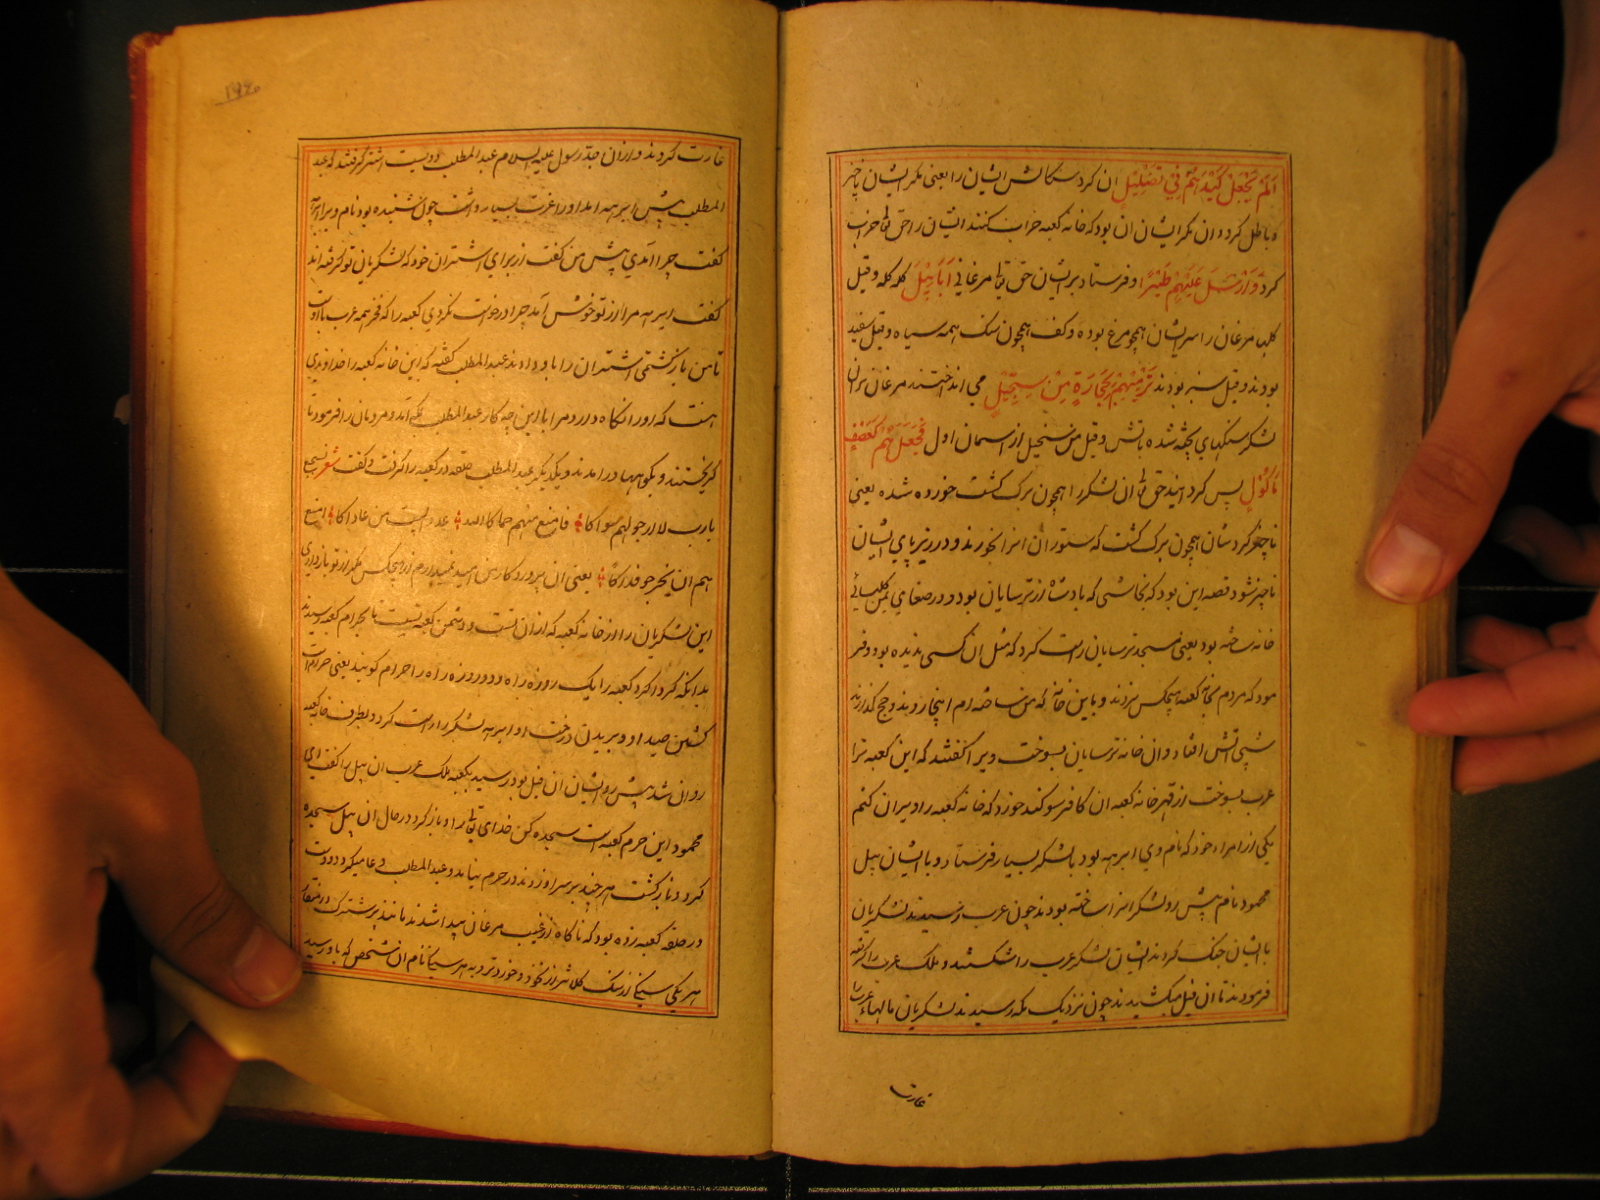 اَلَمْ يَجْعَلْ كَيْدَهُمْ فِي تَضْلِيْلٍ ان کرد سکالش ایشان را یعنی مکر ایشان ناچیز
و باطل کرد و ان مکر ایشان ان بود که خانه کعبه خراب کنند ایشان را حق تعا خراب
کرد وَاَرْسَلَ عَلَيْهِمْ طَيْرًا و فرستاد بر ایشان حق تعا مرغانی اَبَابِيْلَ کله کله و قیل
کلها مرغان را سر ایشان همچو مرغ بوده و کف همچون سک همه سیاه و قیل سفید
بودند و قیل سبز بودند تَرْمِيْهِمْ بِحِجَارَةٍ مِنْ سِجِّيْلٍ می انداختند مرغان بران
لشکر سنکهای پخته شده باتش و قیل من سجیل از اسمان اول فَجَعَلَهُمْ كَعَصْفٍ
مَاْكُوْلٍ پس کردانید حق تعا ان لشکر را همچون برک کشت خورده شده یعنی
ناچیز کردشان همچون برک کشت که ستوران انرا خورند و در زیر پای ایشان
ناچیز شود قصه این بود که نجاشی که بادشاه ترسایان بود و در صنعای یمن کلیسائی
خانه ساخته بود یعنی مسجد ترسایان راست کرد که مثل ان کسی ندیده بود و فر
مود که مردم بجای کعبه هیچکس نروند و باین خانه که من ساخته ام اینجا روند و حج کذارند
شبی اتش افتاد و ان خانه ترسایان بسوخت ویرا کفتند که این کعبه ترا
عرب بسوخت از قهر خانه کعبه ان کافر سوکند خورد که خانه کعبه را ویران کنم
یکی از امراء خود که نام وی ابرهه بود با لشکر بسیار فرستاد و با ایشان پیل
محمود نام پیش رو لشکر انرا ساخته بودند چون عرب رسیدند لشکریان
با ایشان جنک کردند ایشان لشکر عرب را شکستند و ملک عرب را کرفته
فرمودند تا ان فیل میکشیدند چون نزدیک مکه رسیدند لشکریان مالهاء عرب را
غارت
غارت کردند و ازان جد رسول علیه السلام عبد المطلب دویست اشتر کرفتند که عبد
المطلب پیش ابرهه امد او را عزت بسیار داشت چون شنیده بود نام ویرا ابرهه
کفت چرا آمدی پیش من کفت از برای اشتران خود که لشکریان تو کرفته اند
کفت ابرهه مرا از تو خوش آمد چرا درخواست نکردی کعبه را که فخر همه عرب باوست
تا من باز کشتمی اشتران را باو دادند عبد المطلب کفته که این خانه کعبه را خداوندی
هست که او را نکاه دارد مرا با این چه کار عبد المطلب بمکه آمد و مردمان را فرمود تا
کریختند و بکوهها درامدند و یکدیکر عبد المطلب حلقه در کعبه را کرفت و کفت شعر
یا رب لا ارجو لهم سواکا فامنع منهم حماکا عدو البیت من عاداکا امنع
یعنی ان پروردکار من امید نمیدارم از هیچکس مکر از تو باز داری
این لشکریان را از خانه کعبه که ازان تست و دشمن کعبه تست تا بحرام کعبه رسیدند
بدانکه کرداکرد کعبه را یک روزه راه و دو روزه راه را احرام کویند یعنی حرام است
کشتن صید او و بریدن درخت او ابرهه لشکر راست کرد و بطرف خانه کعبه
روان شد پیش رو ایشان ان فیل بود رسید بکعبه ملک عرب ان پیل را کفت ای
محمود این حرم کعبه است سجده کن خدای تعا را و باز کرد در حال ان پیل سجده
کرد و باز کشت هر چند بر سر او زدند در حرم نیامد و عبد المطلب دعا میکرد و دست
در حلقه کعبه زده بود که ناکاه از غیب مرغان پیدا شدند مانند پرشترک در منقار
هر یکی سنکی از سنک کلان تر از نخود و خوردتر و به هر سنکی نام ان شخص که باو رسید